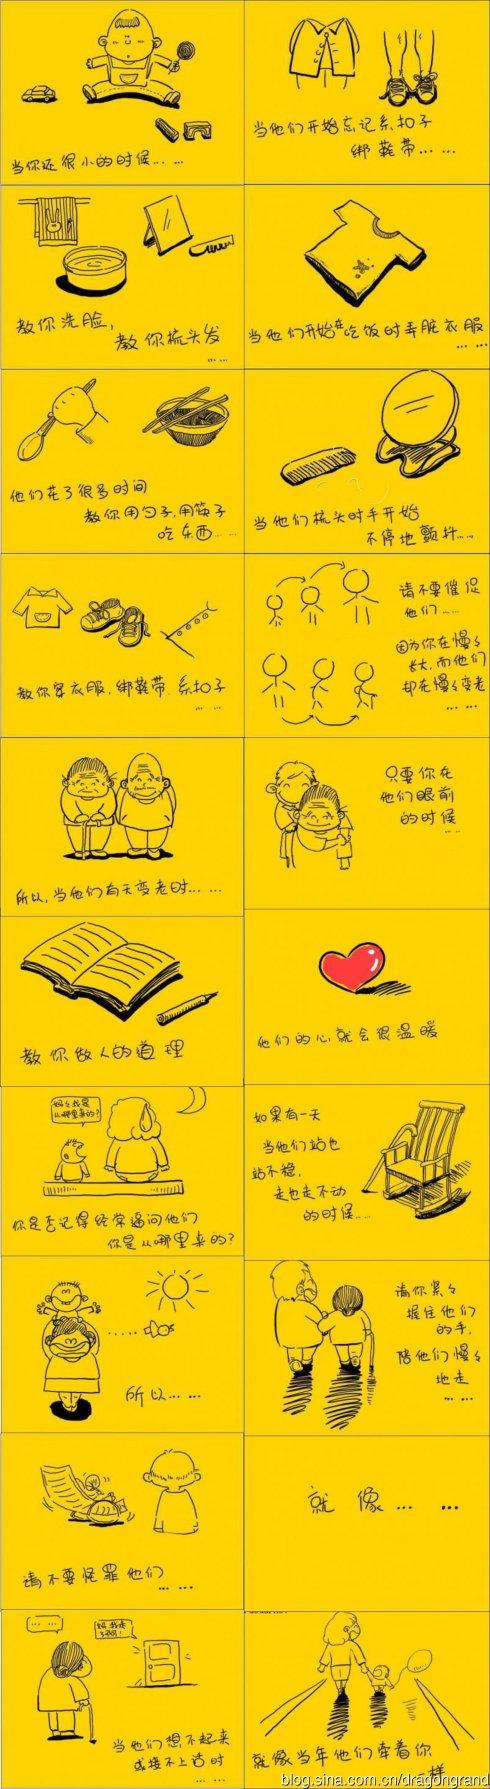 当你还很小的时候... ...
教你洗脸，
教你梳头发
... ...
他们花了很多时间
教你用勺子,用筷子
吃东西... ...
教你穿衣服,绑鞋带.系扣子
... ...
所以,当他们有天变老时... ...
教你做人的道理
妈々我是
从哪里来的?
你是否记得经常逼问他们
你是从哪里来的?
所以... ...
请不要怪罪他们
... ...
... ...
妈,我走
了啊!
当他们想不起来
或接不上话时
... ...
当他们开始忘记系扣子
绑鞋带... ...
当他们开始在吃饭时弄脏衣服
... ...
当他们梳头时手开始
不停地颤抖... ...
请不要催促
他们... ...
因为你在慢々
长大,而他们
却在慢々变老
... ...
只要你在
他们眼前
的时候
... ...
他们的心就会很温暖
如果有一天
当他们站也
站不稳,
走也走不动
的时候... ...
请你紧々
握住他们
的手,
陪他们慢々
地走
... ...
就像... ...
就像当年他们牵着你
一样
blog.sina.com.cn/dragongrand